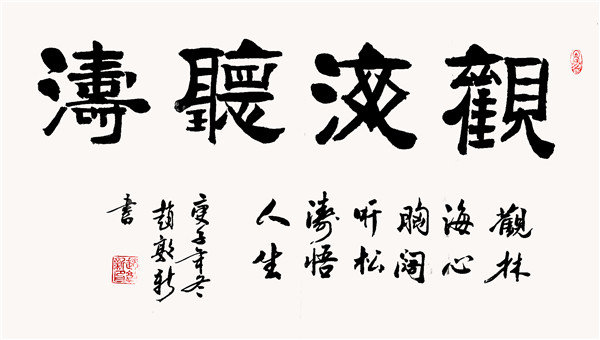 觀海聽濤
觀林
海心
胸闊
听松
濤悟
人生
庚子年冬
趙新
書